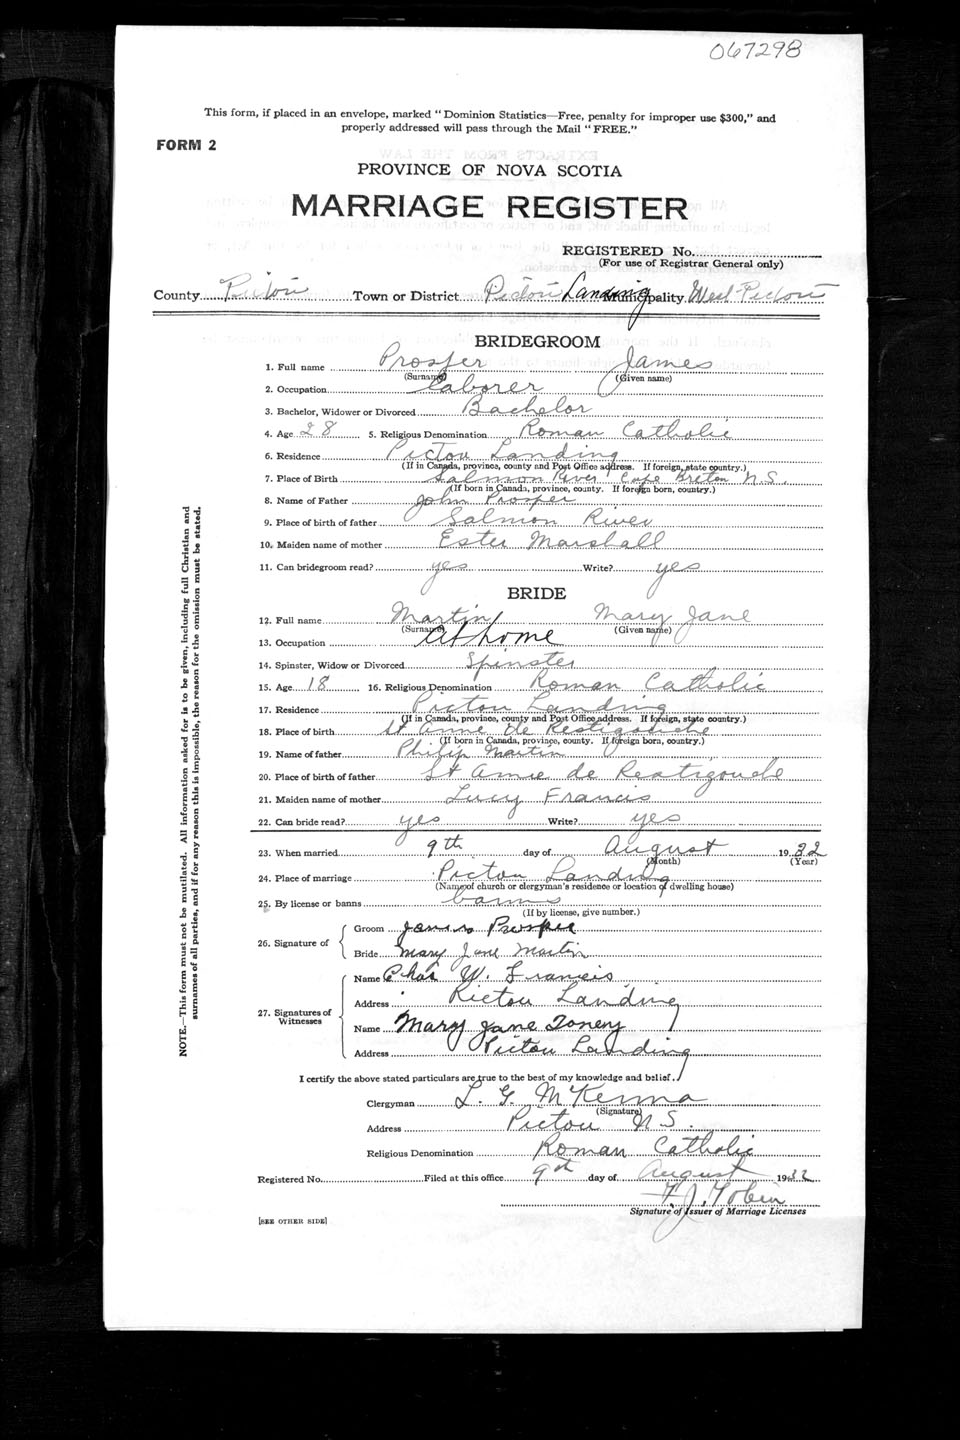 067298
This form, if placed in an envelope, marked "Dominion Statistics—Free, penalty for improper use $300," and
properly addressed will pass through the Mail "FREE."
FORM 2
PROVINCE OF NOVA SCOTIA
MARRIAGE REGISTER
REGISTERED No.
(For use of Registrar General only)
County Pictou Town or District Pictou Landing Municipality West Pictou
BRIDEGROOM
1. Full name Prosper James
(Surname) (Given name)
2. Occupation Laborer
3. Bachelor, Widower or Divorced Bachelor
4. Age 28 5. Religious Denomination Roman Catholic
6. Residence Pictou Landing
(If in Canada, province, county and Post Office address. If foreign, state country.)
7. Place of Birth Salmon River Cape Breton N.S.
(If born in Canada, province, county. If foreign born, country.)
8. Name of Father John Prosper
9. Place of birth of father Salmon River
10. Maiden name of mother Ester Marshall
11. Can bridegroom read? yes Write? yes
BRIDE
12. Full name Martin Mary Jane
(Surname) (Given name)
13. Occupation At home
14. Spinster, Widow or Divorced Spinster
15. Age 18 16. Religious Denomination Roman Catholic
17. Residence Pictou Landing
(If in Canada, province, county and Post Office address. If foreign, state country.)
18. Place of birth St Anne de Restigouche
(If born in Canada, province, county. If foreign born, country.)
19. Name of father Philip Martin
20. Place of birth of father St Anne de Restigouche
21. Maiden name of mother Lucy Francis
22. Can bride read? yes Write? yes
23. When married 9th day of August 1932
(Month) (Year)
24. Place of marriage Pictou Landing
(Name of church or clergyman's residence or location of dwelling house)
25. By license or banns banns
(If by license, give number.)
26. Signature of Groom James Prosper
Bride Mary Jane Martin
27. Signatures of Witnesses Name Chas W. Francis
Address Pictou Landing
Name Mary Jane Toney
Address Pictou Landing
I certify the above stated particulars are true to the best of my knowledge and belief.
Clergyman L. G. McKenna
(Signature)
Address Pictou N.S.
Religious Denomination Roman Catholic
Registered No. Filed at this office 9th day of August 1932
F. J. Tobin
Signature of Issuer of Marriage Licenses
[SEE OTHER SIDE]
NOTE.—This form must not be mutilated. All information asked for is to be given, including full Christian and
surnames of all parties, and if for any reason this is impossible, the reason for the omission must be stated.